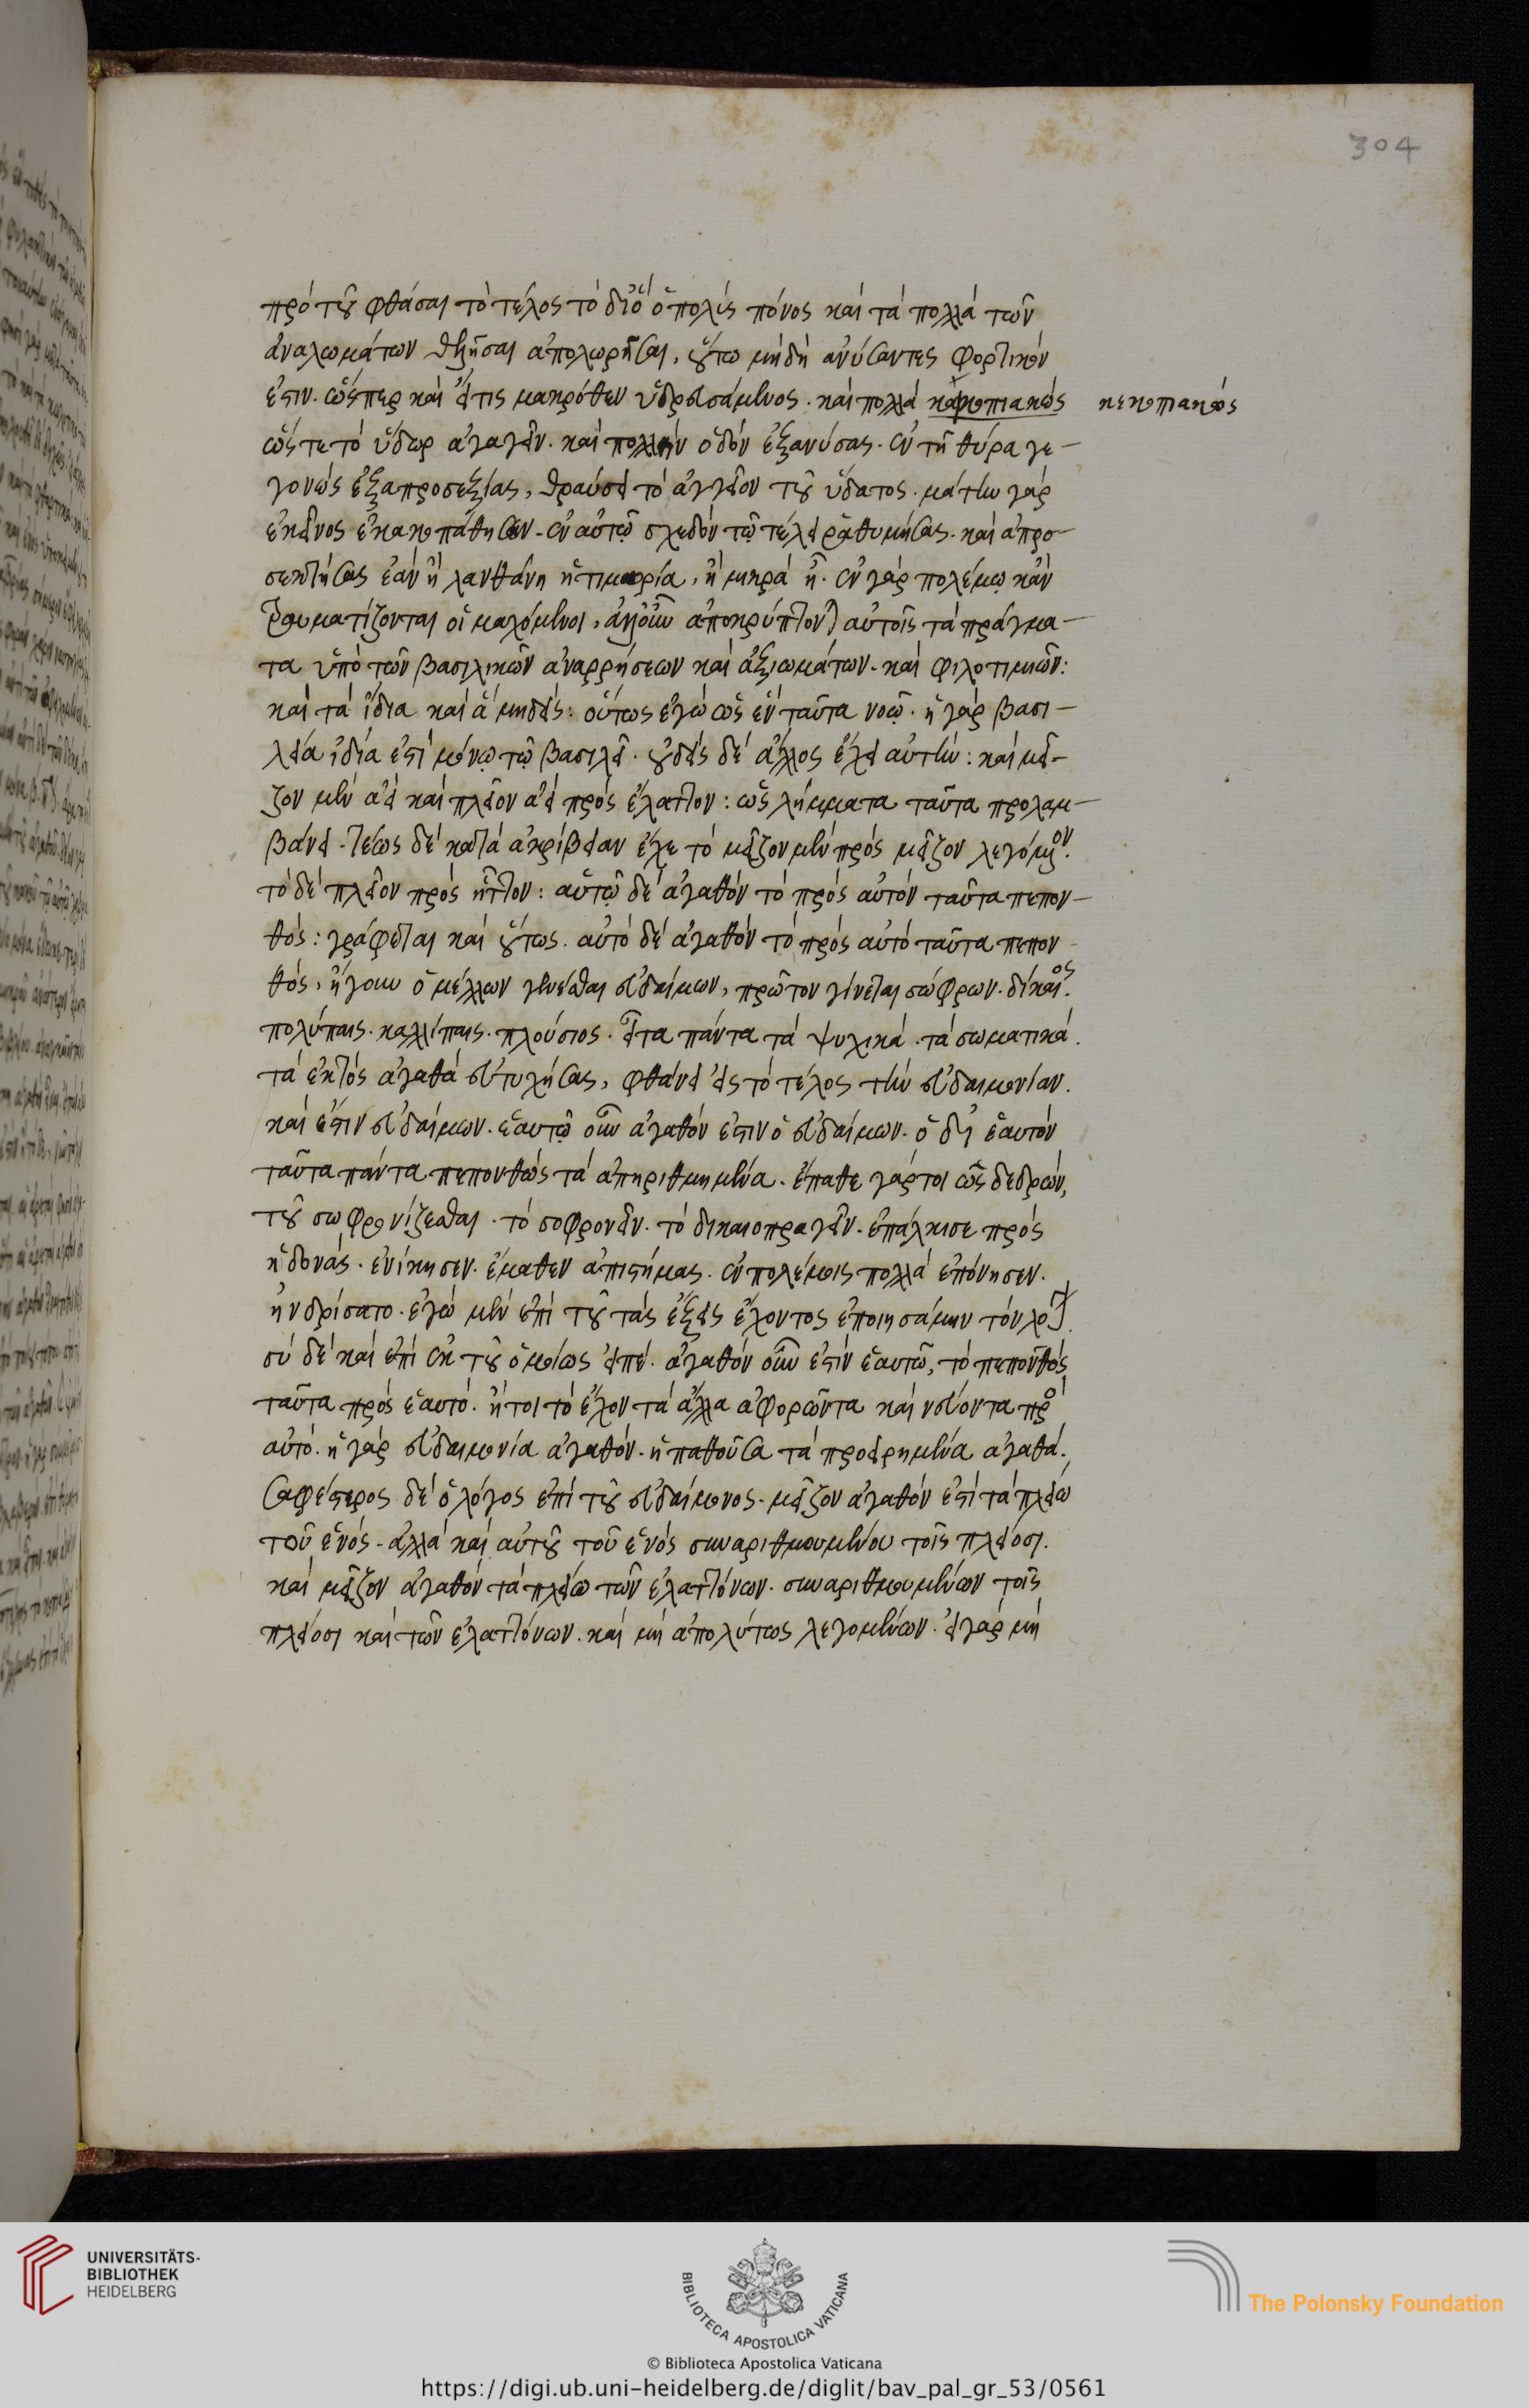 304
πρὸ τοῦ φθάσαι τὸ τέλος τὸ δι' ὃ ὁ πολὺς πόνος καὶ τὰ πολλὰ τῶν
ἀναλωμάτων ἀποχωρῆσαι, οὕτω μηδὲν ἀνύσαντες φορτικόν
ἐστιν. ὥσπερ καὶ εἴ τις μακρόθεν ὑδρευσάμενος. καὶ πολλὰ κακοπιακὼς κεκοπιακὼς
ὥστε τὸ ὕδωρ ἀγαγεῖν. καὶ πολλὴν ὁδὸν ἐξανύσας. ἐν τῇ θύρα γε-
γονὼς ἐξ ἀπροσεξίας, θραύσει τὸ ἀγγεῖον τοῦ ὕδατος. μάτην γὰρ
ἐκεῖνος ἐκακοπάθησεν. ἐν αὐτῷ σχεδὸν τῷ τέλει ῥαθυμήσας. καὶ ἀπρο-
σεκτήσας ἐὰν ἢ λανθάνη ἡ τιμωρία, ἢ μικρὰ ᾖ. ἐν γὰρ πολέμῳ κἂν
τραυματίζονται οἱ μαχόμενοι, ἀλλ' οὖν ἀποκρύπτονται αὐτοῖς τὰ πράγμα-
τα ὑπὸ τῶν βασιλικῶν ἀναρρήσεων καὶ ἀξιωμάτων. καὶ φιλοτιμιῶν:
καὶ τὰ ἴδια καὶ ἃ μηδείς: οὕτως ἐγὼ ὡς ἓν ταῦτα νοῶ. ἡ γὰρ βασι-
λεία ἰδία ἐστὶ μόνῳ τῷ βασιλεῖ. οὐδεὶς δὲ ἄλλος ἔχει αὐτήν: καὶ μεῖ-
ζον μὲν ἀεὶ καὶ πλεῖον ἀεὶ πρὸς ἔλαττον: ὡς λήμματα ταῦτα προλαμ-
βάνει. τέως δὲ κατὰ ἀκρίβειαν ἔχε τὸ μεῖζον μὲν πρὸς μεῖζον λεγόμενον.
τὸ δὲ πλεῖον πρὸς ἧττον: αὑτῷ δὲ ἀγαθὸν τὸ πρὸς αὐτὸν ταῦτα πεπον-
θός: γράφεται καὶ οὕτως. αὐτὸ δὲ ἀγαθὸν τὸ πρὸς αὐτὸ ταῦτα πεπον-
θός, ἤγουν ὁ μέλλων γενέσθαι εὐδαίμων, πρῶτον γίνεται σώφρων. δίκαιος.
πολύπαις. καλλίπαις. πλούσιος. εἶτα πάντα τὰ ψυχικά. τὰ σωματικά.
τὰ ἐκτὸς ἀγαθὰ εὐτυχήσας, φθάνει εἰς τὸ τέλος τὴν εὐδαιμονίαν.
καὶ ἔστιν εὐδαίμων. ἑαυτῷ οὖν ἀγαθόν ἐστιν ὁ εὐδαίμων. ὁ δι' ἑαυτὸν
ταῦτα πάντα πεπονθὼς τὰ ἀπηριθμημένα. ἔπαθε γάρ τοι ὡς δεδρών,
τοῦ σωφρονίζεσθαι. τὸ σοφρονεῖν. τὸ δικαιοπραγεῖν. ἐπάλαισε πρὸς
ἡδονάς. ἐνίκησεν. ἔμαθεν ἀπιστήμας. ἐν πολέμοις πολλὰ ἐπόνησεν.
ἠνδρίσατο. ἐγὼ μὲν ἐπὶ τοῦ τὰς ἕξεις ἔχοντος ἐποιησάμην τὸν λόγον.
σὺ δὲ καὶ ἐπὶ ἐκ τοῦ ὁμοίως εἰπέ. ἀγαθὸν οὖν ἐστὶν ἑαυτῶ, τὸ πεπονθὸς
ταῦτα πρὸς ἑαυτό. ἤτοι τὸ ἔχον τὰ ἄλλα ἀφορῶντα καὶ νεύοντα πρὸς
αὐτό. ἡ γὰρ εὐδαιμονία ἀγαθόν. ἡ παθοῦσα τὰ προειρημένα ἀγαθά.
σαφέστερος δὲ ὁ λόγος ἐπὶ τοῦ εὐδαίμονος. μεῖζον ἀγαθὸν ἐστὶ τὰ πλείω
τοῦ ἑνός. ἀλλὰ καὶ αὐτοῦ τοῦ ἑνὸς συναριθμουμένου τοῖς πλείοσι.
καὶ μεῖζον ἀγαθὸν τὰ πλείω τῶν ἐλαττόνων. συναριθμουμένων τοῖς
πλείοσι καὶ τῶν ἐλαττόνων. καὶ μὴ ἀπολύτως λεγομένων. εἰ γὰρ μὴ
UNIVERSITÄTS-
BIBLIOTHEK
HEIDELBERG
BIBLIOTECA APOSTOLICA VATICANA
© Biblioteca Apostolica Vaticana
The Polonsky Foundation
https://digi.ub.uni-heidelberg.de/diglit/bav_pal_gr_53/0561